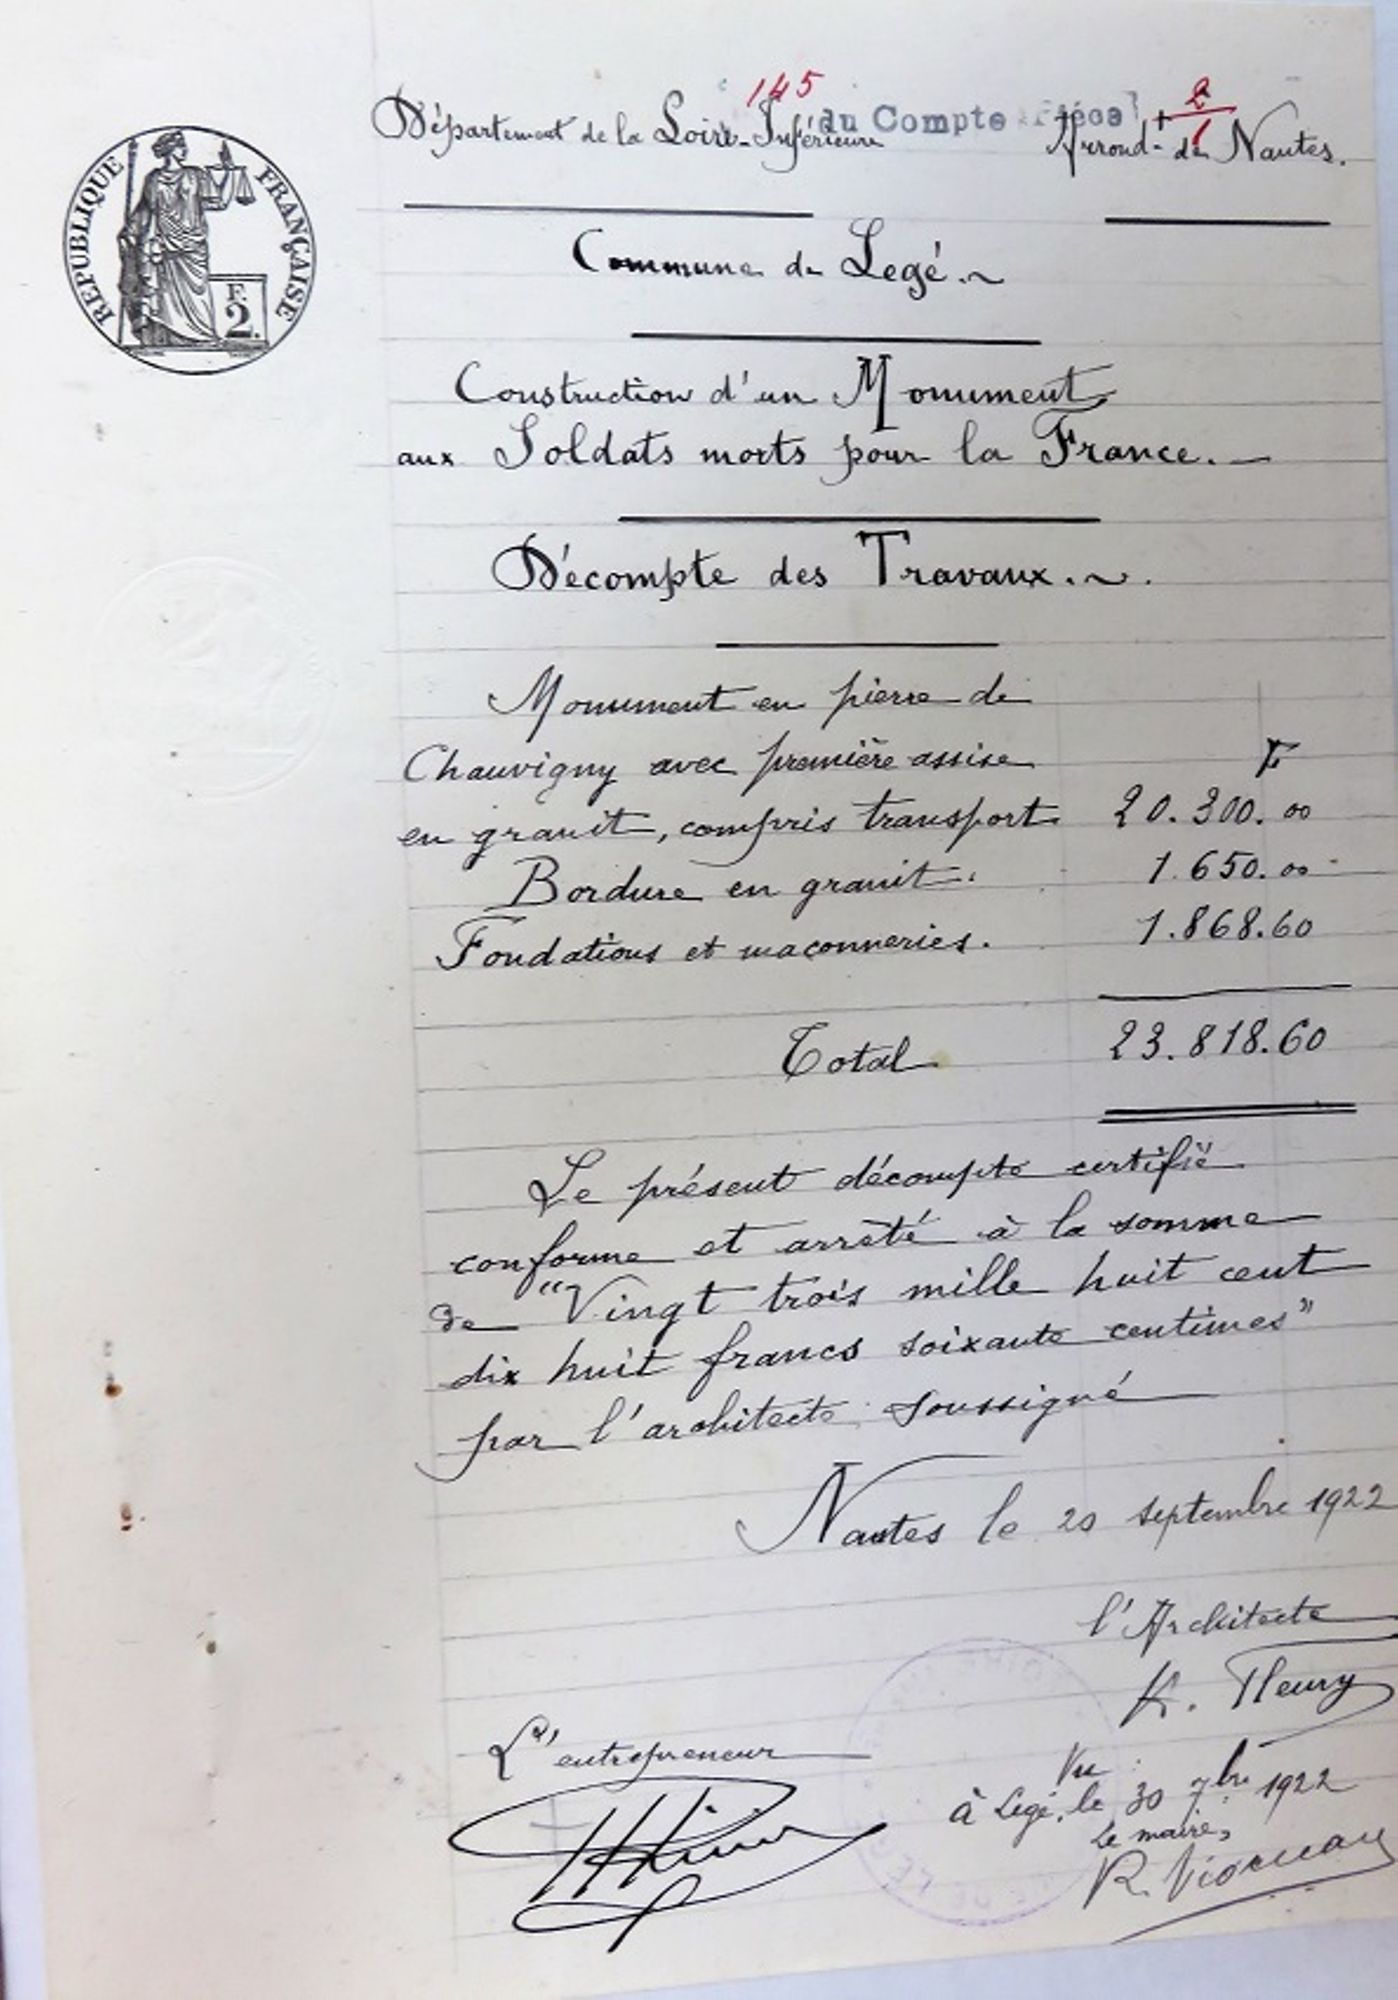 145
du Compte Pièce
2
1
Département de la Loire-Inférieure
Arrond.t de Nantes.
RÉPUBLIQUE FRANÇAISE
F.
2.
Commune de Legé.~
Construction d'un Monument
aux Soldats morts pour la France.—
Décompte des Travaux.~.
Monument en pierre de
Chauvigny avec première assise
F
en granit, compris transport 20.300.00
Bordure en granit. 1.650.00
Fondations et maçonneries. 1.868.60
Total 23.818.60
Le présent décompte certifié
conforme et arrêté à la somme
de "Vingt trois mille huit cent
dix huit francs soixante centimes"
par l'architecte soussigné
Nantes le 20 septembre 1922
l'Architecte
Fleury
L'entrepreneur
Vu
à Legé, le 30 7bre 1922
Le maire,